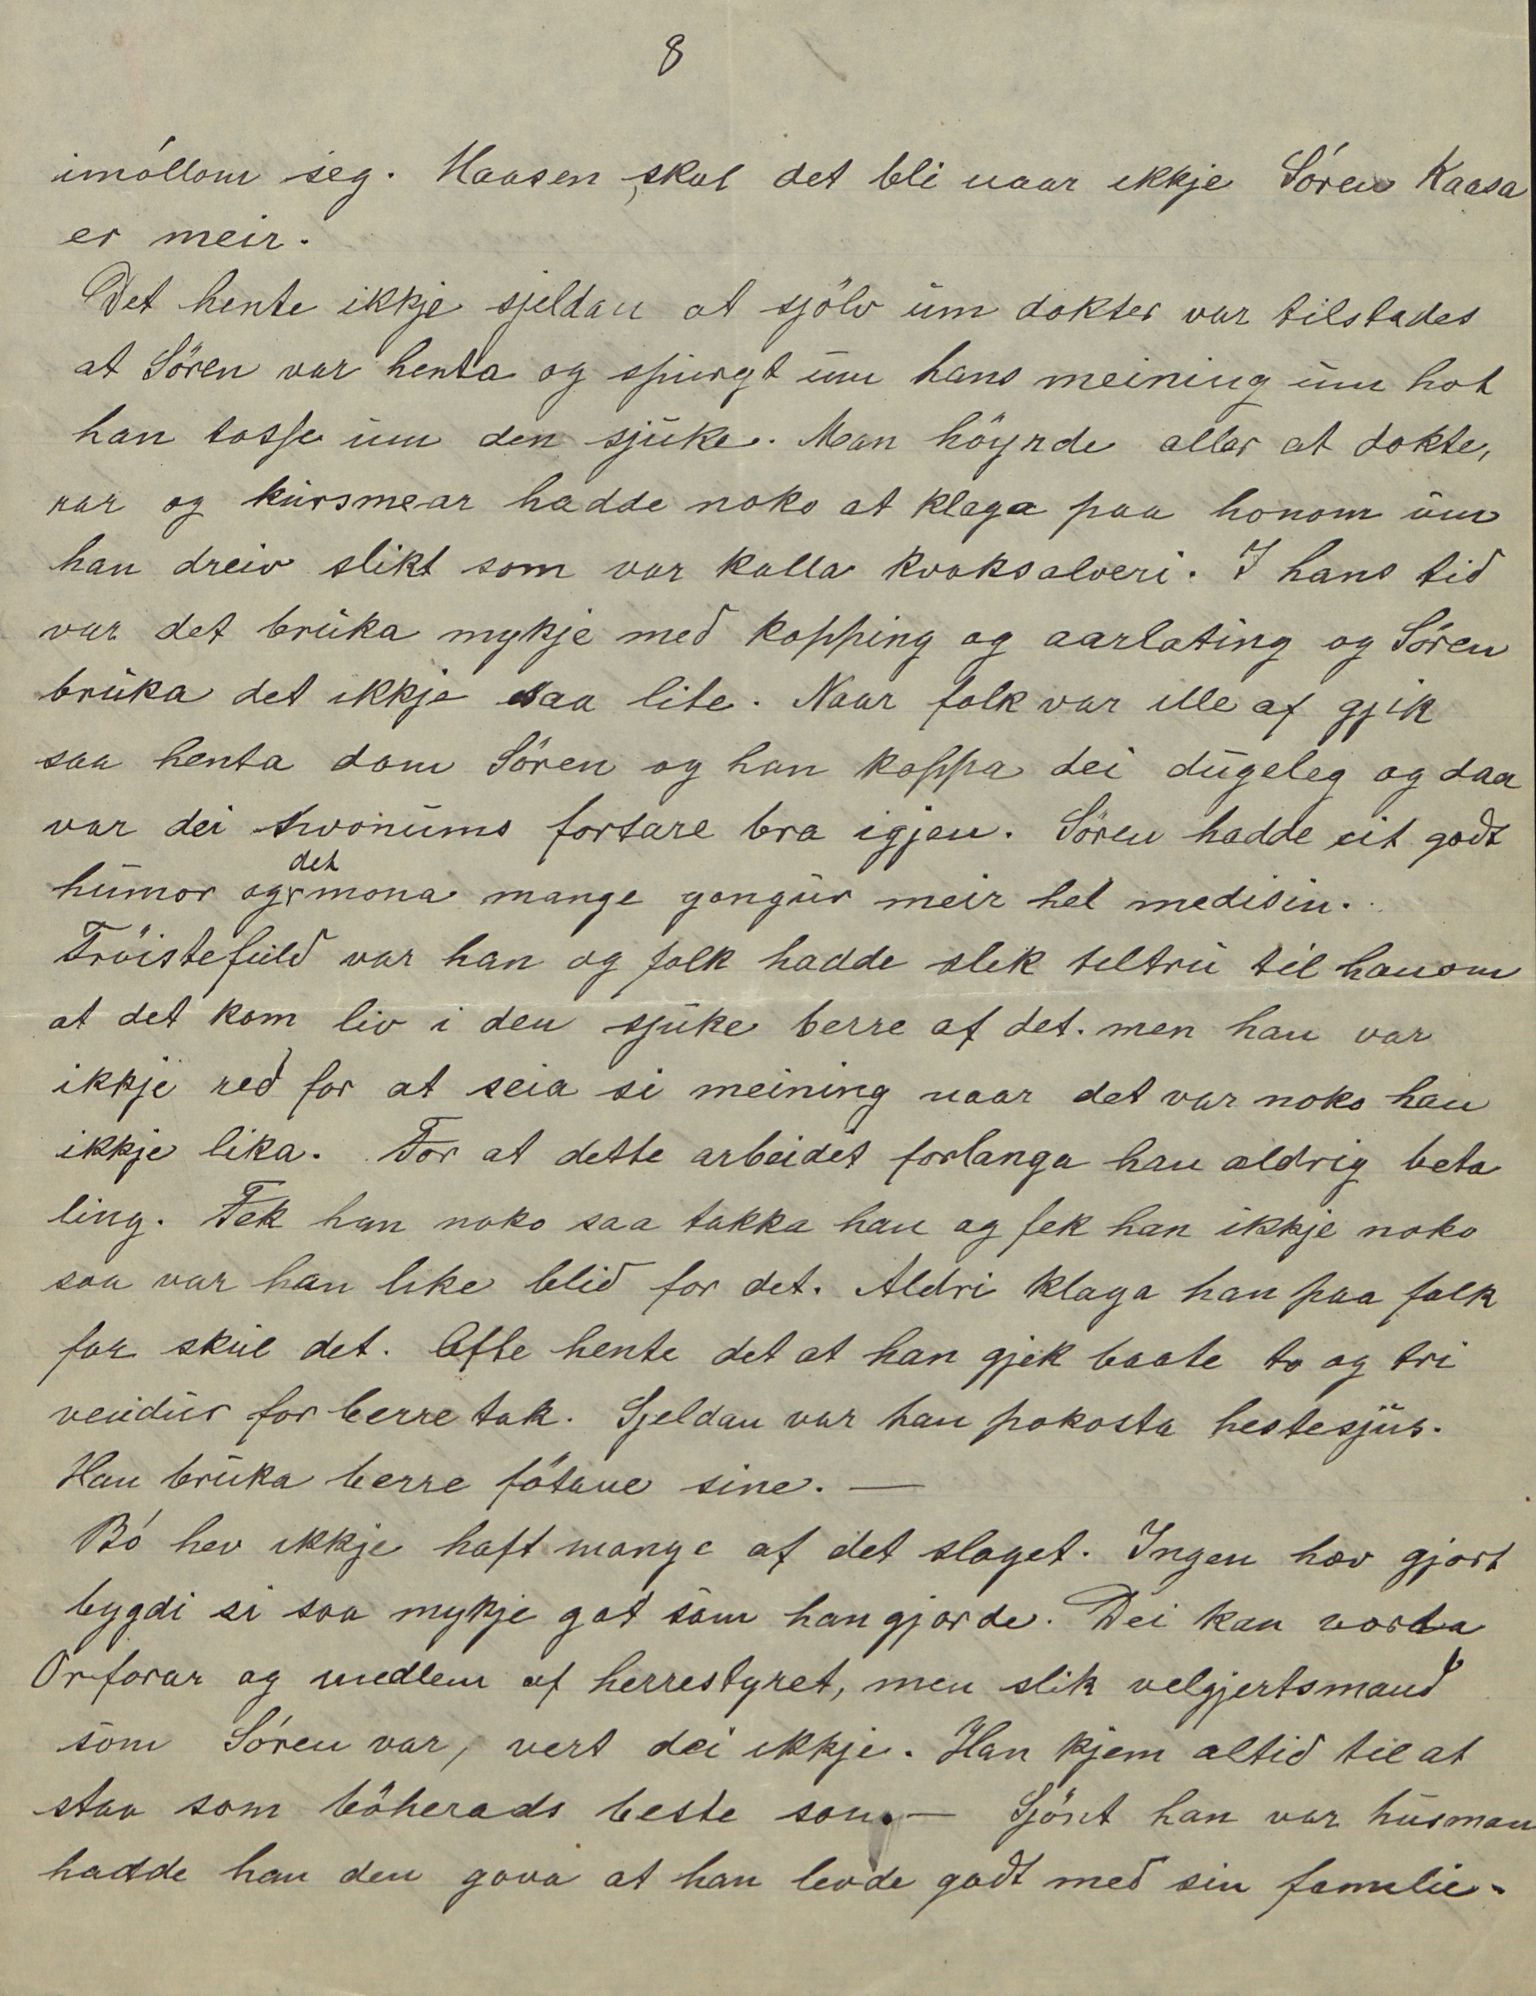 8
imóllom seg. Haasen skal det bli naar ikkje Sóren Kaasa
er meir.
Det hente ikkje sjeldan at sjölv um dokter var tilstades
at Sören var henta og spurgt um hans meining um hot
han tosse um den sjuke. Man höyrde aller at dokte,
rar og kursmear hadde noko at klaga paa honom um
han dreiv slikt som var kalla kvaksalveri. I hans tid
var det bruka mykje med kopping og aarlating og Sóren
bruka det ikkje saa lite. Naar folk var ille af gjik
saa henta dom Sören og han koppa dei dugeleg og daa
var dei tvonums fortare bra igjen. Sören hadde eit godt
humor og det mona mange gongur meir hel medisin.
Tröistefuld var han og folk hadde slek teltru til hanom
at det kom liv i den sjuke berre af det. men han var
ikkje red for at seia si meining naar det var noko han
ikkje lika. For at dette arbeidet forlanga han aldrig beta
ling. Fek han noko saa takka han og fek han ikkje noko
saa var han like blid for det. Aldri klaga han paa folk
for skul det. Ofte hente det at han gjek baate to og tri
vendur for berre tak. Sjeldan var han pokosta hestesjus.
Han bruka berre fötane sine. —
Bó hev ikkje haft mange af det slaget. Ingen hav gjort
bygdi si saa mykje got som han gjorde. Dei kan vorta
Orforar og medlem af herrestyret, men slik velgjertsmand
som Sóren var, vert dei ikkje. Han kjem altid til at
staa som böherads beste son. — Sjönt han var husman
hadde han den gava at han levde godt med sin familie.